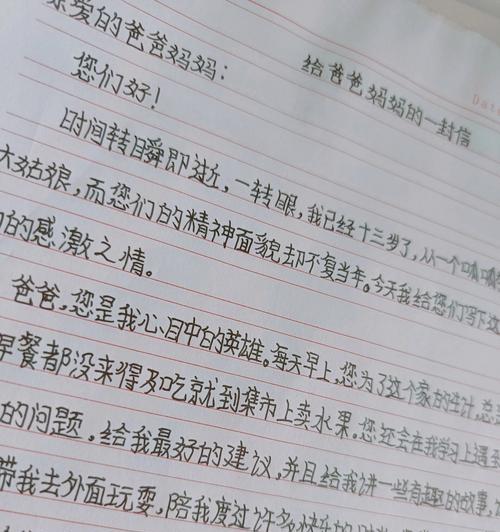 给爸爸妈妈的一封信
亲爱的爸爸妈妈：
您们好！
时间转瞬即逝，一转眼，我已经十三岁了，从一个呱呱
大姑娘，而您们的精神面貌却不复当年。今天我给您们写下这
的感激之情。
爸爸，您是我心目中的英雄。每天早上，您为了这个家的生计，总
早餐都没来得及吃就到集市上卖水果。您还会在我学习上遇
的问题。给我最好的建议，并且给我讲一些有趣的故事，
带我去外面玩耍，陪我度过许多快乐的